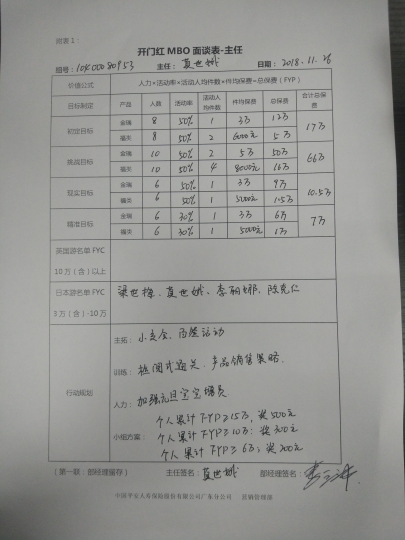 附表1：
开门红MBO面谈表-主任
部号：10400080953 主任：夏世娥 日期：2018.11.26
价值公式 人力×活动率×活动人均件数×件均保费=总保费（FYP）
目标制定 产品 人数 活动率 活动人均件数 件均保费 总保费 合计总保费
初定目标 金瑞 8 50% 1 3万 12万 17万
福类 8 50% 2 6000元 5万
挑战目标 金瑞 10 50% 2 5万 50万 66万
福类 10 50% 4 8000元 16万
现实目标 金瑞 6 50% 1 3万 9万 10.5万
福类 6 50% 1 5000元 1.5万
精准目标 金瑞 6 30% 1 3万 6万 7万
福类 6 30% 1 5000元 1万
英国游名单FYC
10万（含）以上
日本游名单FYC 梁世梅、夏世娥、李丽娜、陈克仁
3万（含）-10万
行动规划
主拓：小产会、活动
训练：通关、产品销售策略.
人力：加强元旦增员
小组方案：个人累计FYP≥15万：奖500元
个人累计FYP≥10万：奖300元
个人累计FYP≥6万：奖200元
（第一联：部经理留存） 主任签名：夏世娥 部经理签名：
中国平安人寿保险股份有限公司广东分公司 营销管理部